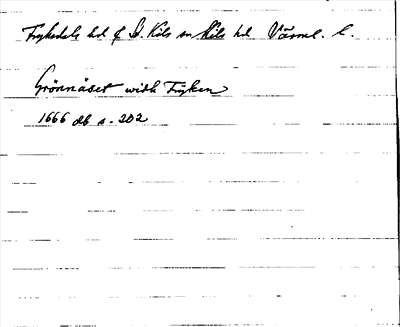 Fryksdals hd f Ö. Kils sn Kils hd Värml. l.
Grönnäset widh Fryken
1666 db s. 202